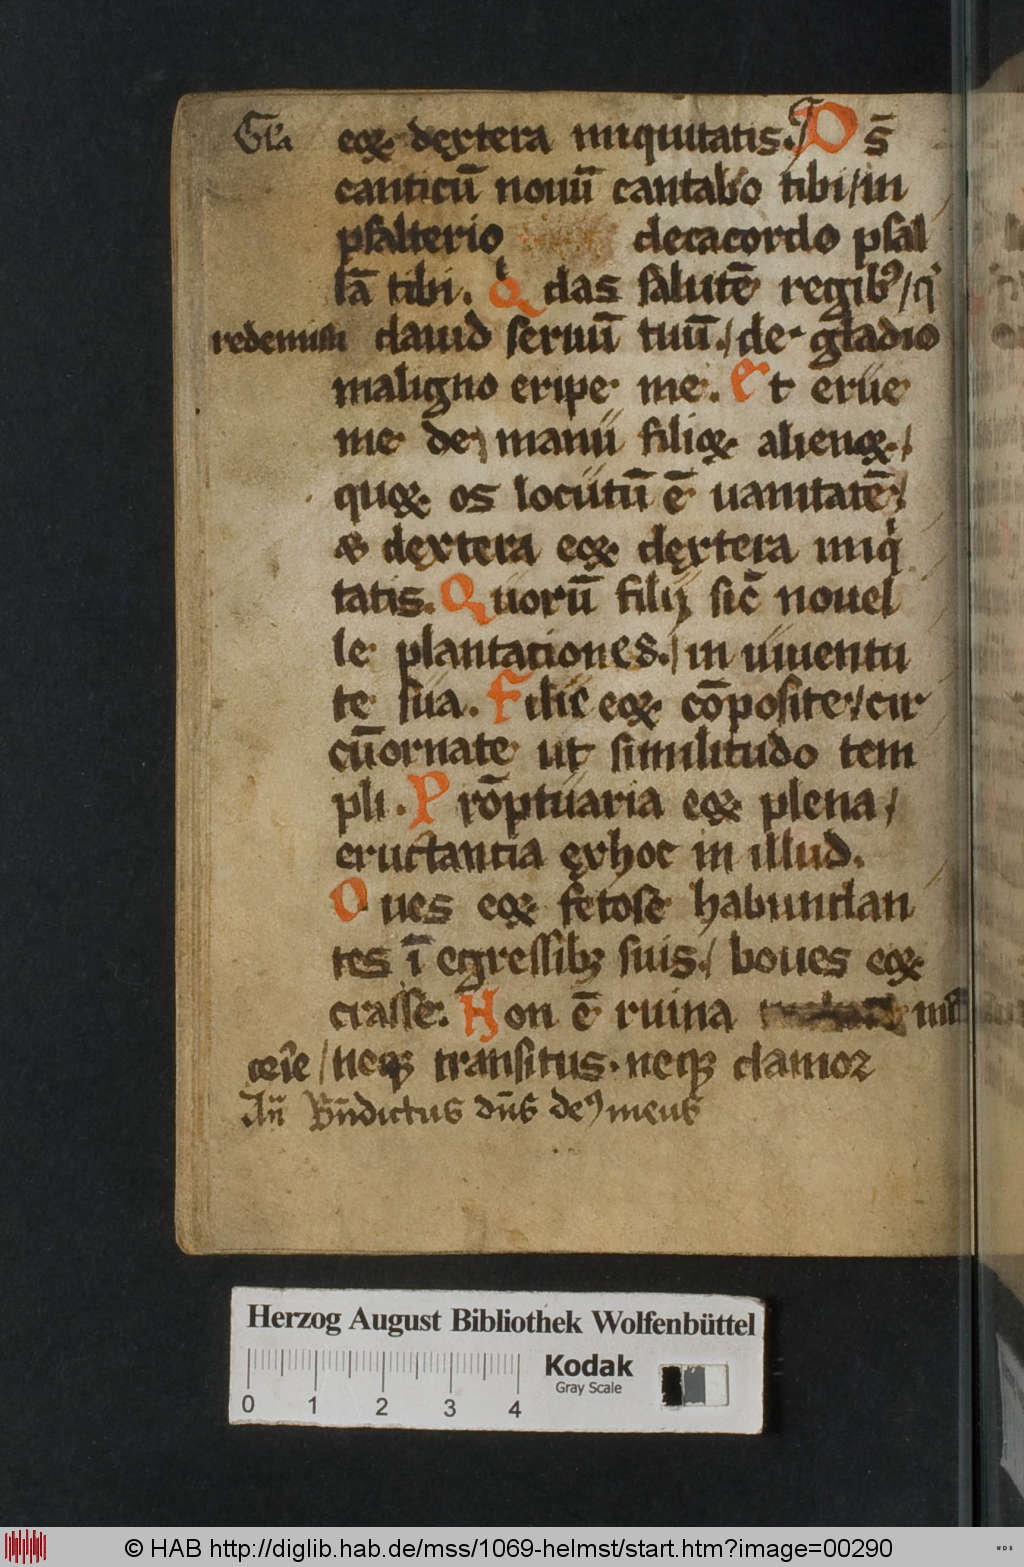 Gl'a eoꝝ dextera iniquitatis. D s̄
canticū nouū cantabo tibi / in
psalterio decacordo psal
lā tibi. Q das salutē regib⁹ / q¹
redemisti dauid seruū tuū. / de gladio
maligno eripe me. Et erue
me de manu filioꝝ alienoꝝ. /
quoꝝ os locutū ē uanitatē /
& dextera eoꝝ dextera iniq¹
tatis. Quorū filij sic̄ nouel
le plantationes. / in iuuentu
te sua. Filie eoꝝ cōposite / cir
cūornate ut similitudo tem
pli. Prōptuaria eoꝝ plena /
eructantia exhoc in illud.
Oues eoꝝ fetose habundan
tes ī egressibꝫ suis. / boues eoꝝ
crasse. Non ē ruina
cerie / neqꝫ transitus. neqꝫ clamor
An̄ Bn̄dictus dn̄s de⁹ meus
Herzog August Bibliothek Wolfenbüttel
Kodak
Gray Scale
0 1 2 3 4
© HAB http://diglib.hab.de/mss/1069-helmst/start.htm?image=00290